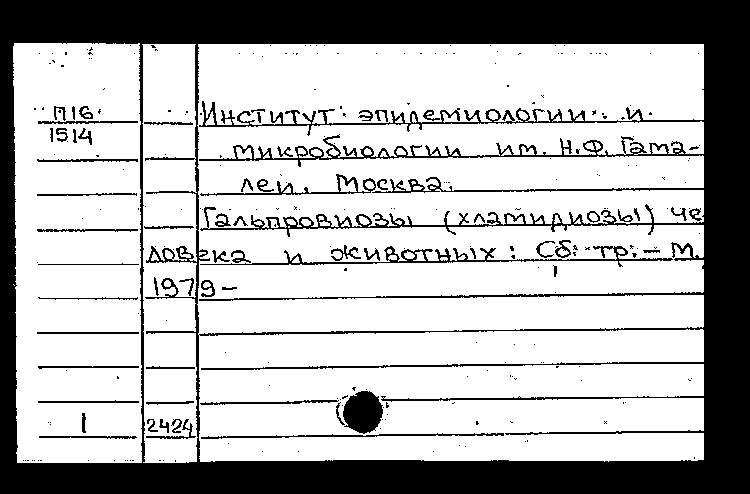 П16
1514
Институт эпидемиологии и
микробиологии им. Н.Ф. Гама-
леи. Москва.
Гальпровиозы (хламидиозы) че
ловека и животных: Сб. тр. - М.
1979-
1
2424